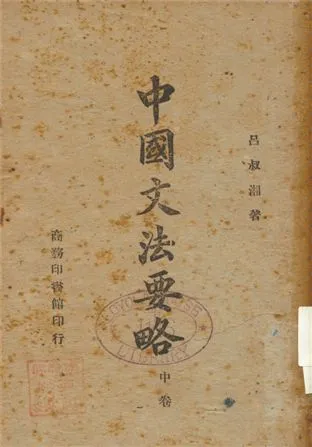 呂叔湘著
中國文法要略
中卷
商務印書館印行